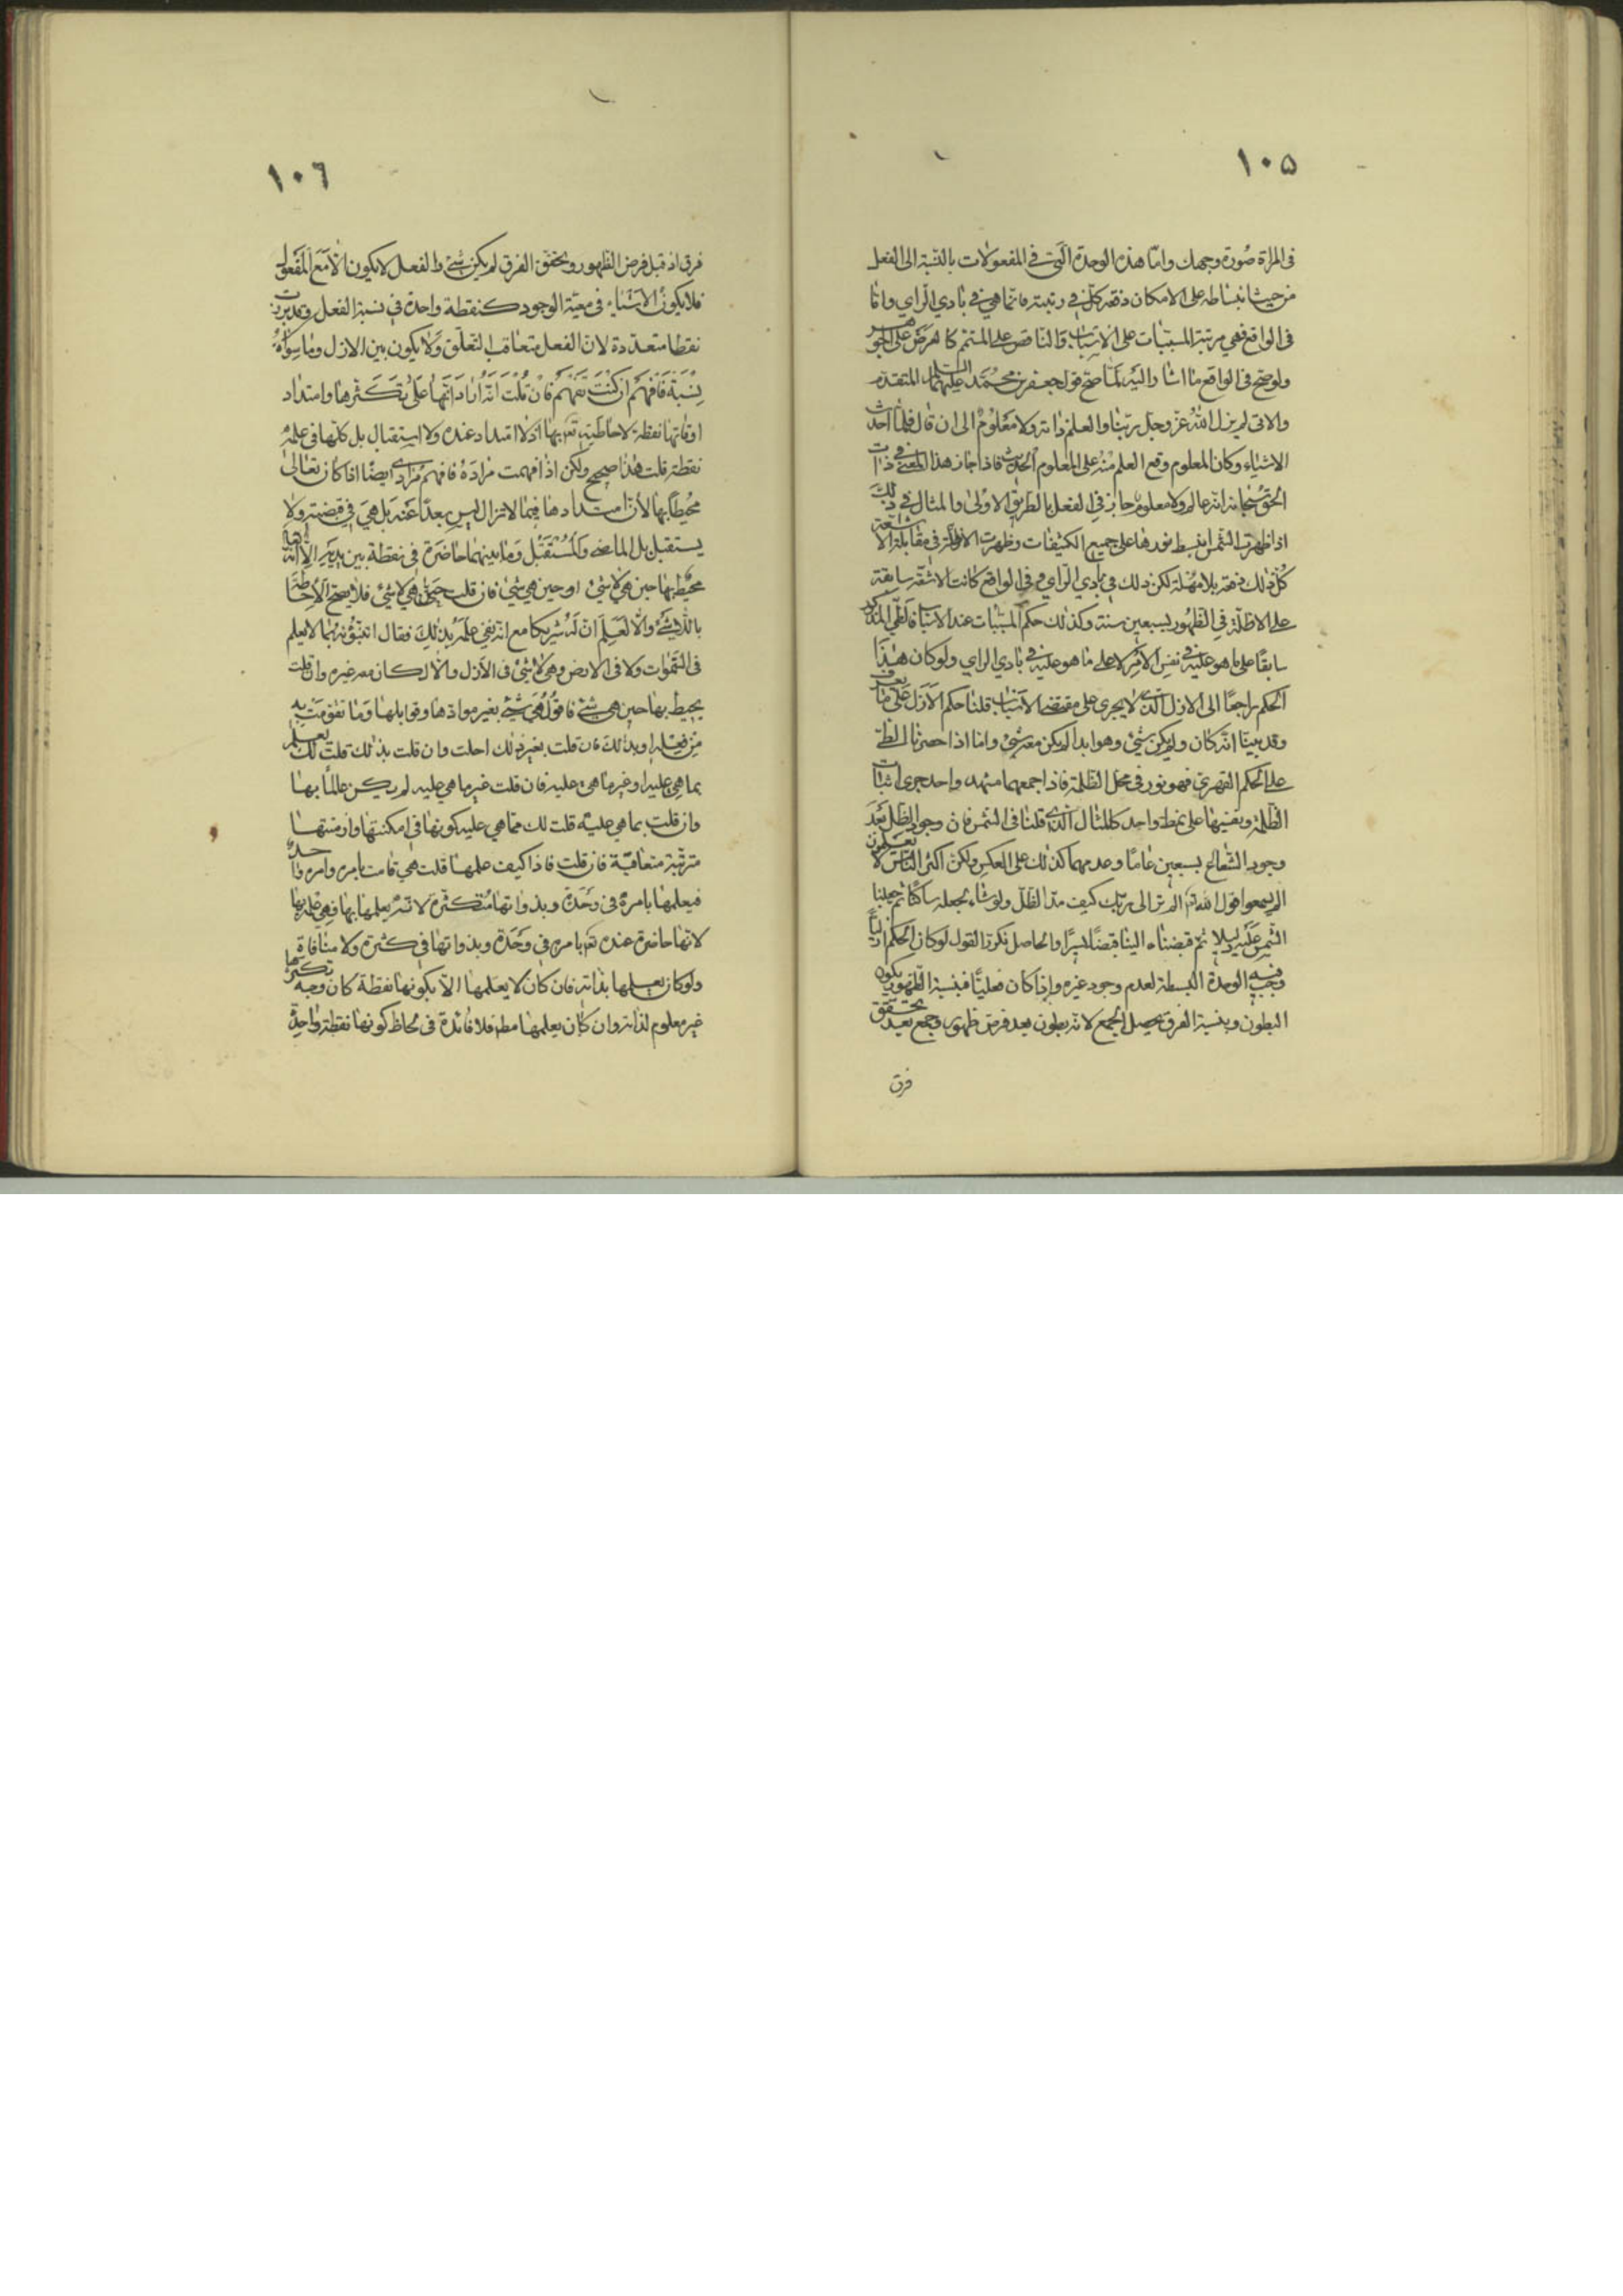 ١٠٥
فى المراة صورة وجهك وامّا هذه الوحدة الّتى فى المفعولات بالنّسبة الى الفعل
من حيث انبساطه على الامكان دفعة كلّ فى رتبته فانّما هى فى بادى الراى وامّا
فى الواقع فهى مرتبة المسبّبات على الاسباب والناقص على المتمّم كالعرض على الجوهر
ولو صحّ فى الواقع ما اشار اليه لما صحّ قول جعفر بن محمّد عليهما السلام المتقدم
والاتى لم يزل الله عزّ وجلّ ربّنا والعلم ذاته ولا معلوم الى ان قال فلمّا احدث
الاشياء وكان المعلوم وقع العلم منه على المعلوم الحديث فاذا جاز هذا المعنى فى ذات
الحقّ سبحانه انّه عالم ولا معلوم جاز فى الفعل بالطريق الاولى والمثال فى ذلك
اذا ظهرت الشمس انبسط نورها على جميع الكثيفات وظهرت الاظلّة فى مقابلة الاشعّة
كلّ ذلك دفعة بلا مهلة لكن ذلك فى بادى الراى وفى الواقع كانت الاشعّة سابقة
على الاظلّة فى الظهور بسبعين سنة وكذلك حكم المسبّبات عند الاسباب
سابقا على ما هو عليه فى نفس الامر لا على ما هو عليه فى بادى الراى ولو كان هذا
الحكم راجعا الى الازل الّذى لا يجرى على مقتضى الاسباب قلنا حكم الازل على ما تعرف
وقد بيّنا انّه كان ولم يكن شىء وهو ابدا لم يكن معه شىء وامّا اذا حصرنا النظر
على الحكم القهرى فهو نور فى محل الظلمة فاذا اجمعهما مشهد واحد جرى اثبات
الظلمة ونفيها على نمط واحد كالمثال الّذى قلنا فى الشمس فان وجود الظل بعد
وجود الشعاع بسبعين عاما وعدمهما كذلك على العكس ولكن اكثر الناس لا يعلمون
الم يسمعوا قول الله تعـ الم تر الى ربّك كيف مدّ الظل ولو شاء لجعله ساكنا ثم جعلنا
الشمس عليه دليلا ثم قبضناه الينا قبضا يسيرا والحاصل نكرر القول لو كان الحكم ازليّا
وجب فيه الوحدة البسيطة لعدم وجود غيره واذا كان فعليّا فبنسبة الظهور يكون
البطون وبنسبة الفرق يحصل الجمع لانّه بطون بعد فرض ظهور وجمع بعد تحقّق
فرق
١٠٦
فرق اذ قبل فرض الظهور وتحقق الفرق لم يكن شىء والفعل لا يكون الّا مع المفعول
فلا يكون الاشياء فى معيّة الوجود كنقطة واحدة فى نسبة الفعل
نقطا متعدّدة لانّ الفعل متعاقب التعلّق ولا يكون بين الازل وما سواه
نسبة فافهم ان كنت تفهم فان قلت انّه اراد انّها على تكثّرها وامتداد
اوقاتها نقطة لاحاطته تعـ بها اذ لا امتداد عنده ولا استقبال بل كلّها فى علمه
نقطة قلت هذا صحيح ولكن اذا فهمت مراده فافهم مرادى ايضا اذا كان تعالى
محيطا بها لانّ امتدادها فيما لا يزال ليس بعدا عنه بل هى فى قبضته ولا
يستقبل بل الماضى والمستقبل وما بينهما حاضرة فى نقطة بين يديه الا انّه
محيط بها حين هى لا شىء او حين هى شىء فان قلت حين هى لا شىء فلا يصحّ الاحاطة
باللاشىء والّا لعلم انّ له شريكا مع انّه نفى علمه بذلك فقال اتنبّؤنه بما لا يعلم
فى السّموات ولا فى الارض وهى لا شىء فى الازل والّا لكان معه غيره وان قلت
يحيط بها حين هى شىء فاقول هى شىء بغير موادّها وقوابلها وما تقوّمت به
من فعله او بذلك فان قلت بغير ذلك احلت وان قلت بذلك قلت لك يعلم
بما هى عليه او غير ما هى عليه فان قلت غير ما هى عليه لم يكن عالما بها
وان قلت بما هى عليه قلت لك ممّا هى عليه كونها فى امكنتها وازمنتها
مترتّبة متعاقبة فان قلت فاذا كيف علمها قلت هى قامت بامره وامره واحد
فيعلمها بامره فى وحدة وبذواتها متكثّرة لانّه يعلمها بها فهى علمه بها
لانّها حاضرة عنده تعـ بامره فى وحدة وبذواتها فى كثيرة ولا منافاة
ولو كان يعلمها بذاته فان كان لا يعلمها الّا بكونها نقطة كان وجه تكثّرها
غير معلوم لذاته وان كان يعلمها مطـ فلا فائدة فى لحاظ كونها نقطة واحدة